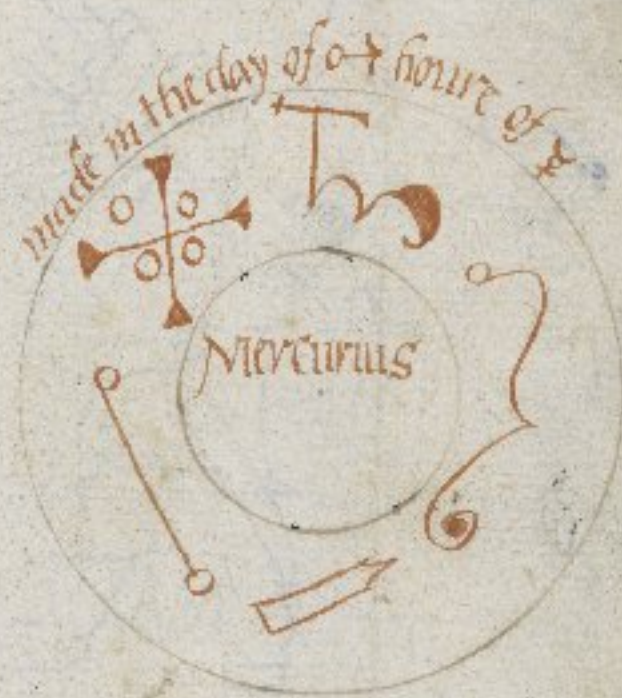 made in the day of ♂ houre of
Mercurius